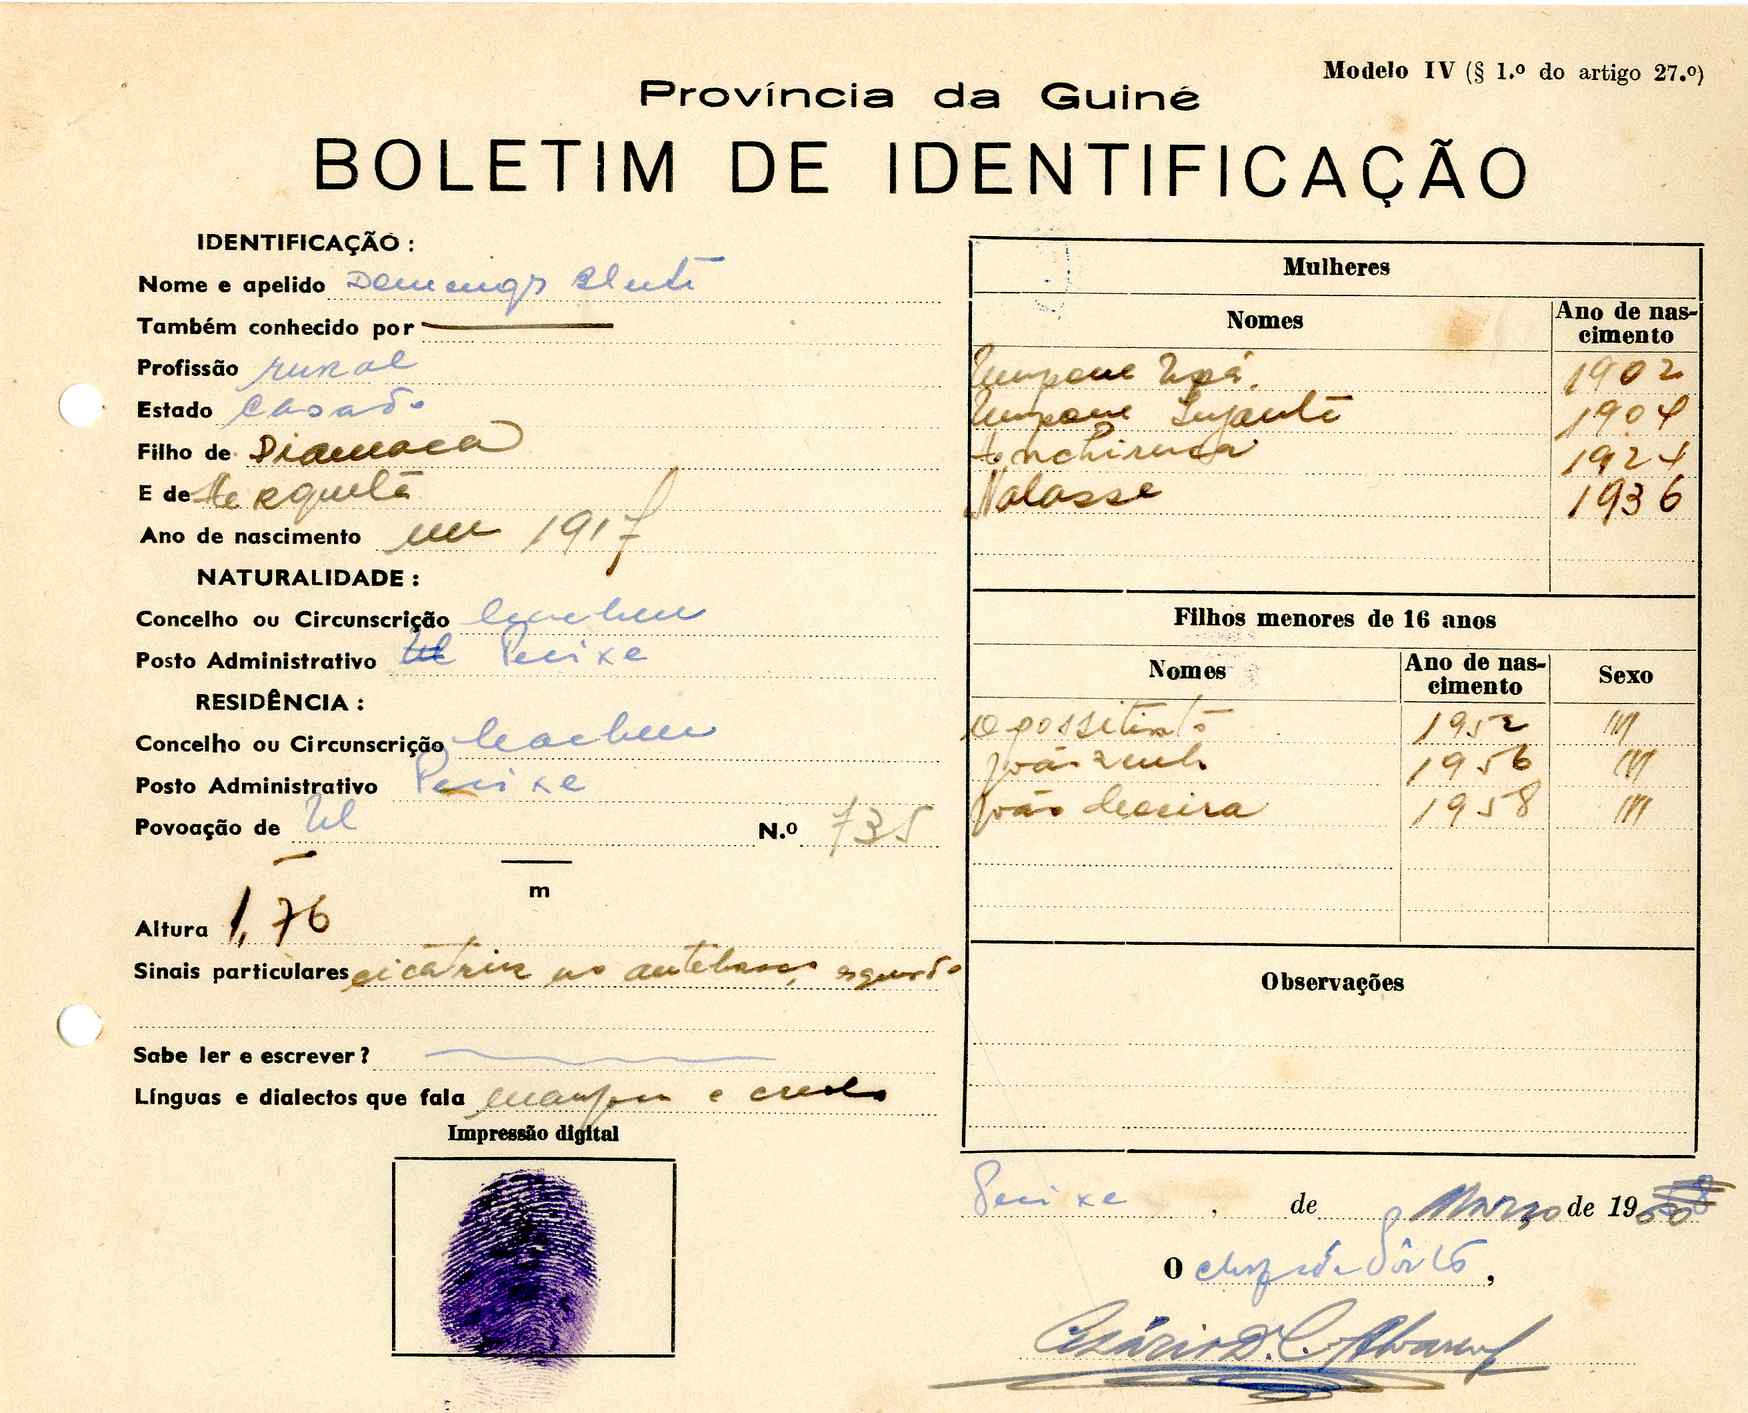 Modelo IV (§ 1.º do artigo 27.º)
Província da Guiné
BOLETIM DE IDENTIFICAÇÃO
IDENTIFICAÇÃO :
Nome e apelido Domingos
Também conhecido por
Profissão rural
Estado casado
Filho de Diamaca
E de
Ano de nascimento em 1917
NATURALIDADE :
Concelho ou Circunscrição Cacheu
Posto Administrativo Pecixe
RESIDÊNCIA :
Concelho ou Circunscrição Cacheu
Posto Administrativo Pecixe
Povoação de N.º 735
m
Altura 1,76
Sinais particulares cicatriz no antebraço esquerdo
Sabe ler e escrever ?
Línguas e dialectos que fala manjaco e crioulo
Impressão digital
Mulheres
Nomes Ano de nas-
cimento
1902
1904
1924
Nalasse 1936
Filhos menores de 16 anos
Nomes Ano de nas-
cimento Sexo
1952 M
João 1956 M
João 1958 M
Observações
Pecixe, de Março de 19
O chefe de Pôsto,